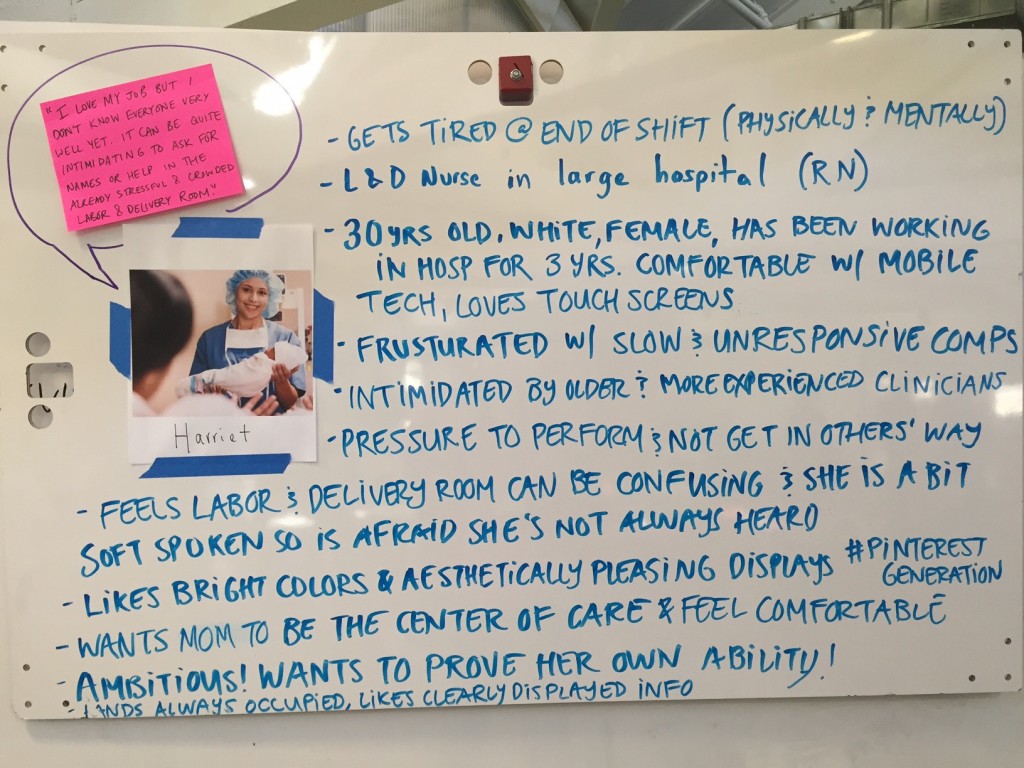 "I LOVE MY JOB BUT I
DON'T KNOW EVERYONE VERY
WELL YET. IT CAN BE QUITE
INTIMIDATING TO ASK FOR
NAMES OR HELP IN THE
ALREADY STRESSFUL & CROWDED
LABOR & DELIVERY ROOM."
Harriet
- GETS TIRED @ END OF SHIFT (PHYSICALLY & MENTALLY)
- L&D Nurse in large hospital (RN)
- 30 YRS OLD, WHITE, FEMALE, HAS BEEN WORKING
IN HOSP FOR 3 YRS. COMFORTABLE W/ MOBILE
TECH, LOVES TOUCH SCREENS
- FRUSTURATED W/ SLOW & UNRESPONSIVE COMPS
- INTIMIDATED BY OLDER & MORE EXPERIENCED CLINICIANS
- PRESSURE TO PERFORM & NOT GET IN OTHERS' WAY
- FEELS LABOR & DELIVERY ROOM CAN BE CONFUSING & SHE IS A BIT
SOFT SPOKEN SO IS AFRAID SHE'S NOT ALWAYS HEARD
- LIKES BRIGHT COLORS & AESTHETICALLY PLEASING DISPLAYS #PINTEREST
GENERATION
- WANTS MOM TO BE THE CENTER OF CARE & FEEL COMFORTABLE
- AMBITIOUS! WANTS TO PROVE HER OWN ABILITY!
- HANDS ALWAYS OCCUPIED, LIKES CLEARLY DISPLAYED INFO